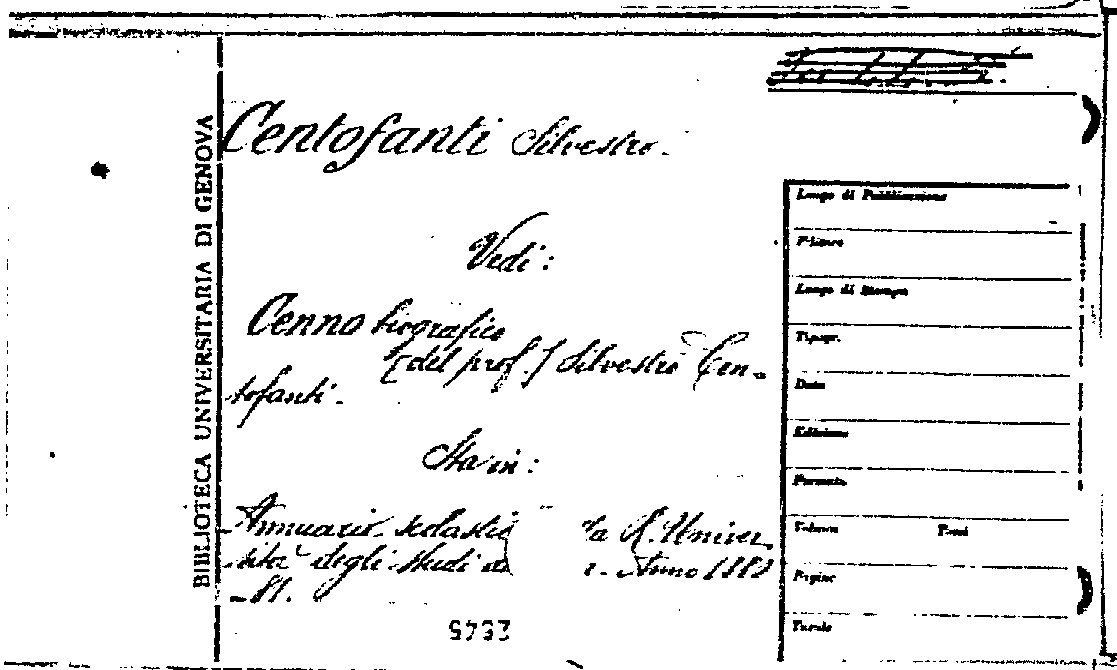 BIBLIOTECA UNIVERSITARIA DI GENOVA
Centofanti Silvestro.
Vedi:
Cenno biografico
[del prof.] Silvestro Cen-
tofanti.
Sta in:
Annuario scolastic la R. Univer
sità degli studi Anno 1880
-81.
Luogo di Pubblicazione
Editore
Luogo di Stampa
Tipogr.
Data
Edizione
Formato
Volume Tomi
Pagine
Tavole